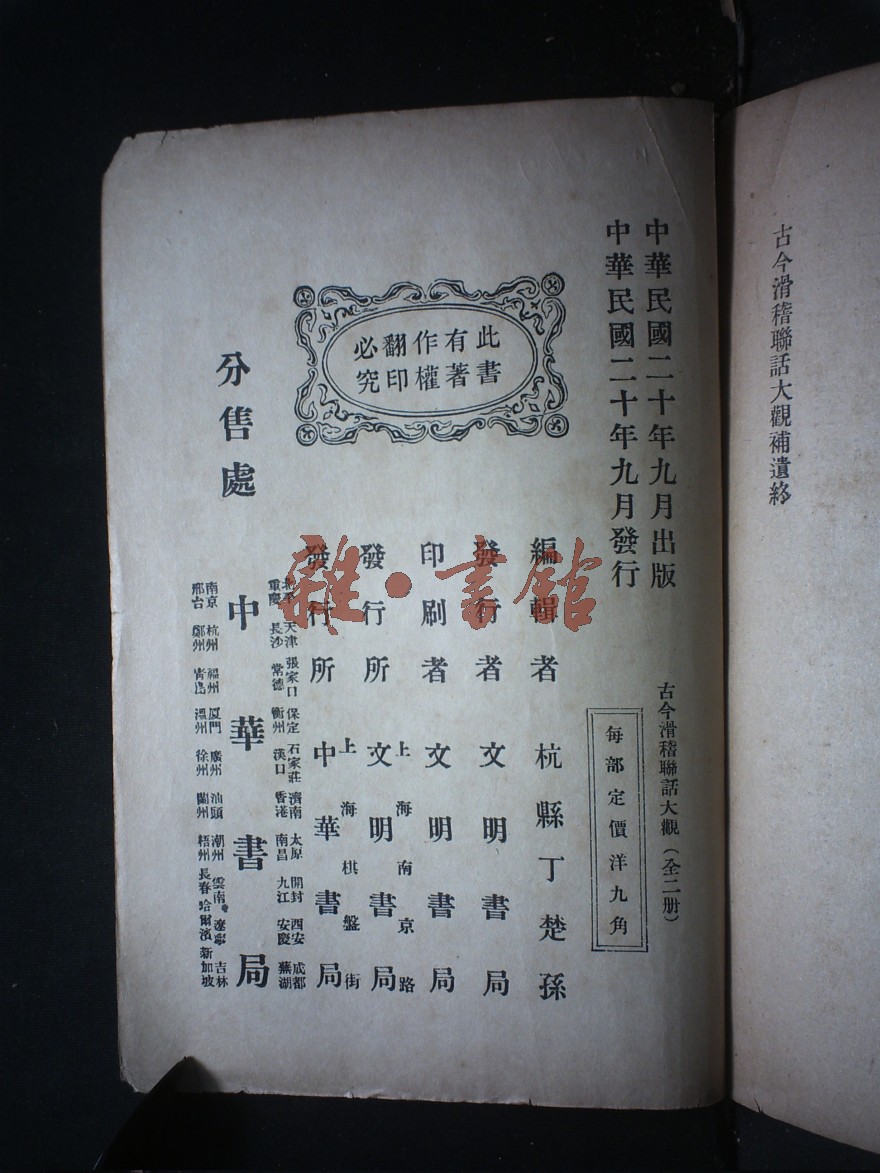 古今滑稽聯話大觀補遺終
中華民國二十年九月出版
中華民國二十年九月發行
古今滑稽聯話大觀(全二册)
每部定價洋九角
此書
有著
作權
翻印
必究
編輯者 杭縣丁楚孫
發行者 文明書局
印刷者 文明書局
上海南京路
發行所 文明書局
上海棋盤街
發行所 中華書局
分售處
北平 天津 張家口 保定 石家莊 濟南 太原 開封 西安 成都
重慶 長沙 常德 衡州 漢口 香港 南昌 九江 安慶 蕪湖
中華書局
南京 杭州 福州 厦門 廣州 汕頭 潮州 雲南 遼寧 吉林
邢台 鄭州 青島 溫州 徐州 蘭州 梧州 長春 哈爾濱 新加坡
雜·書館